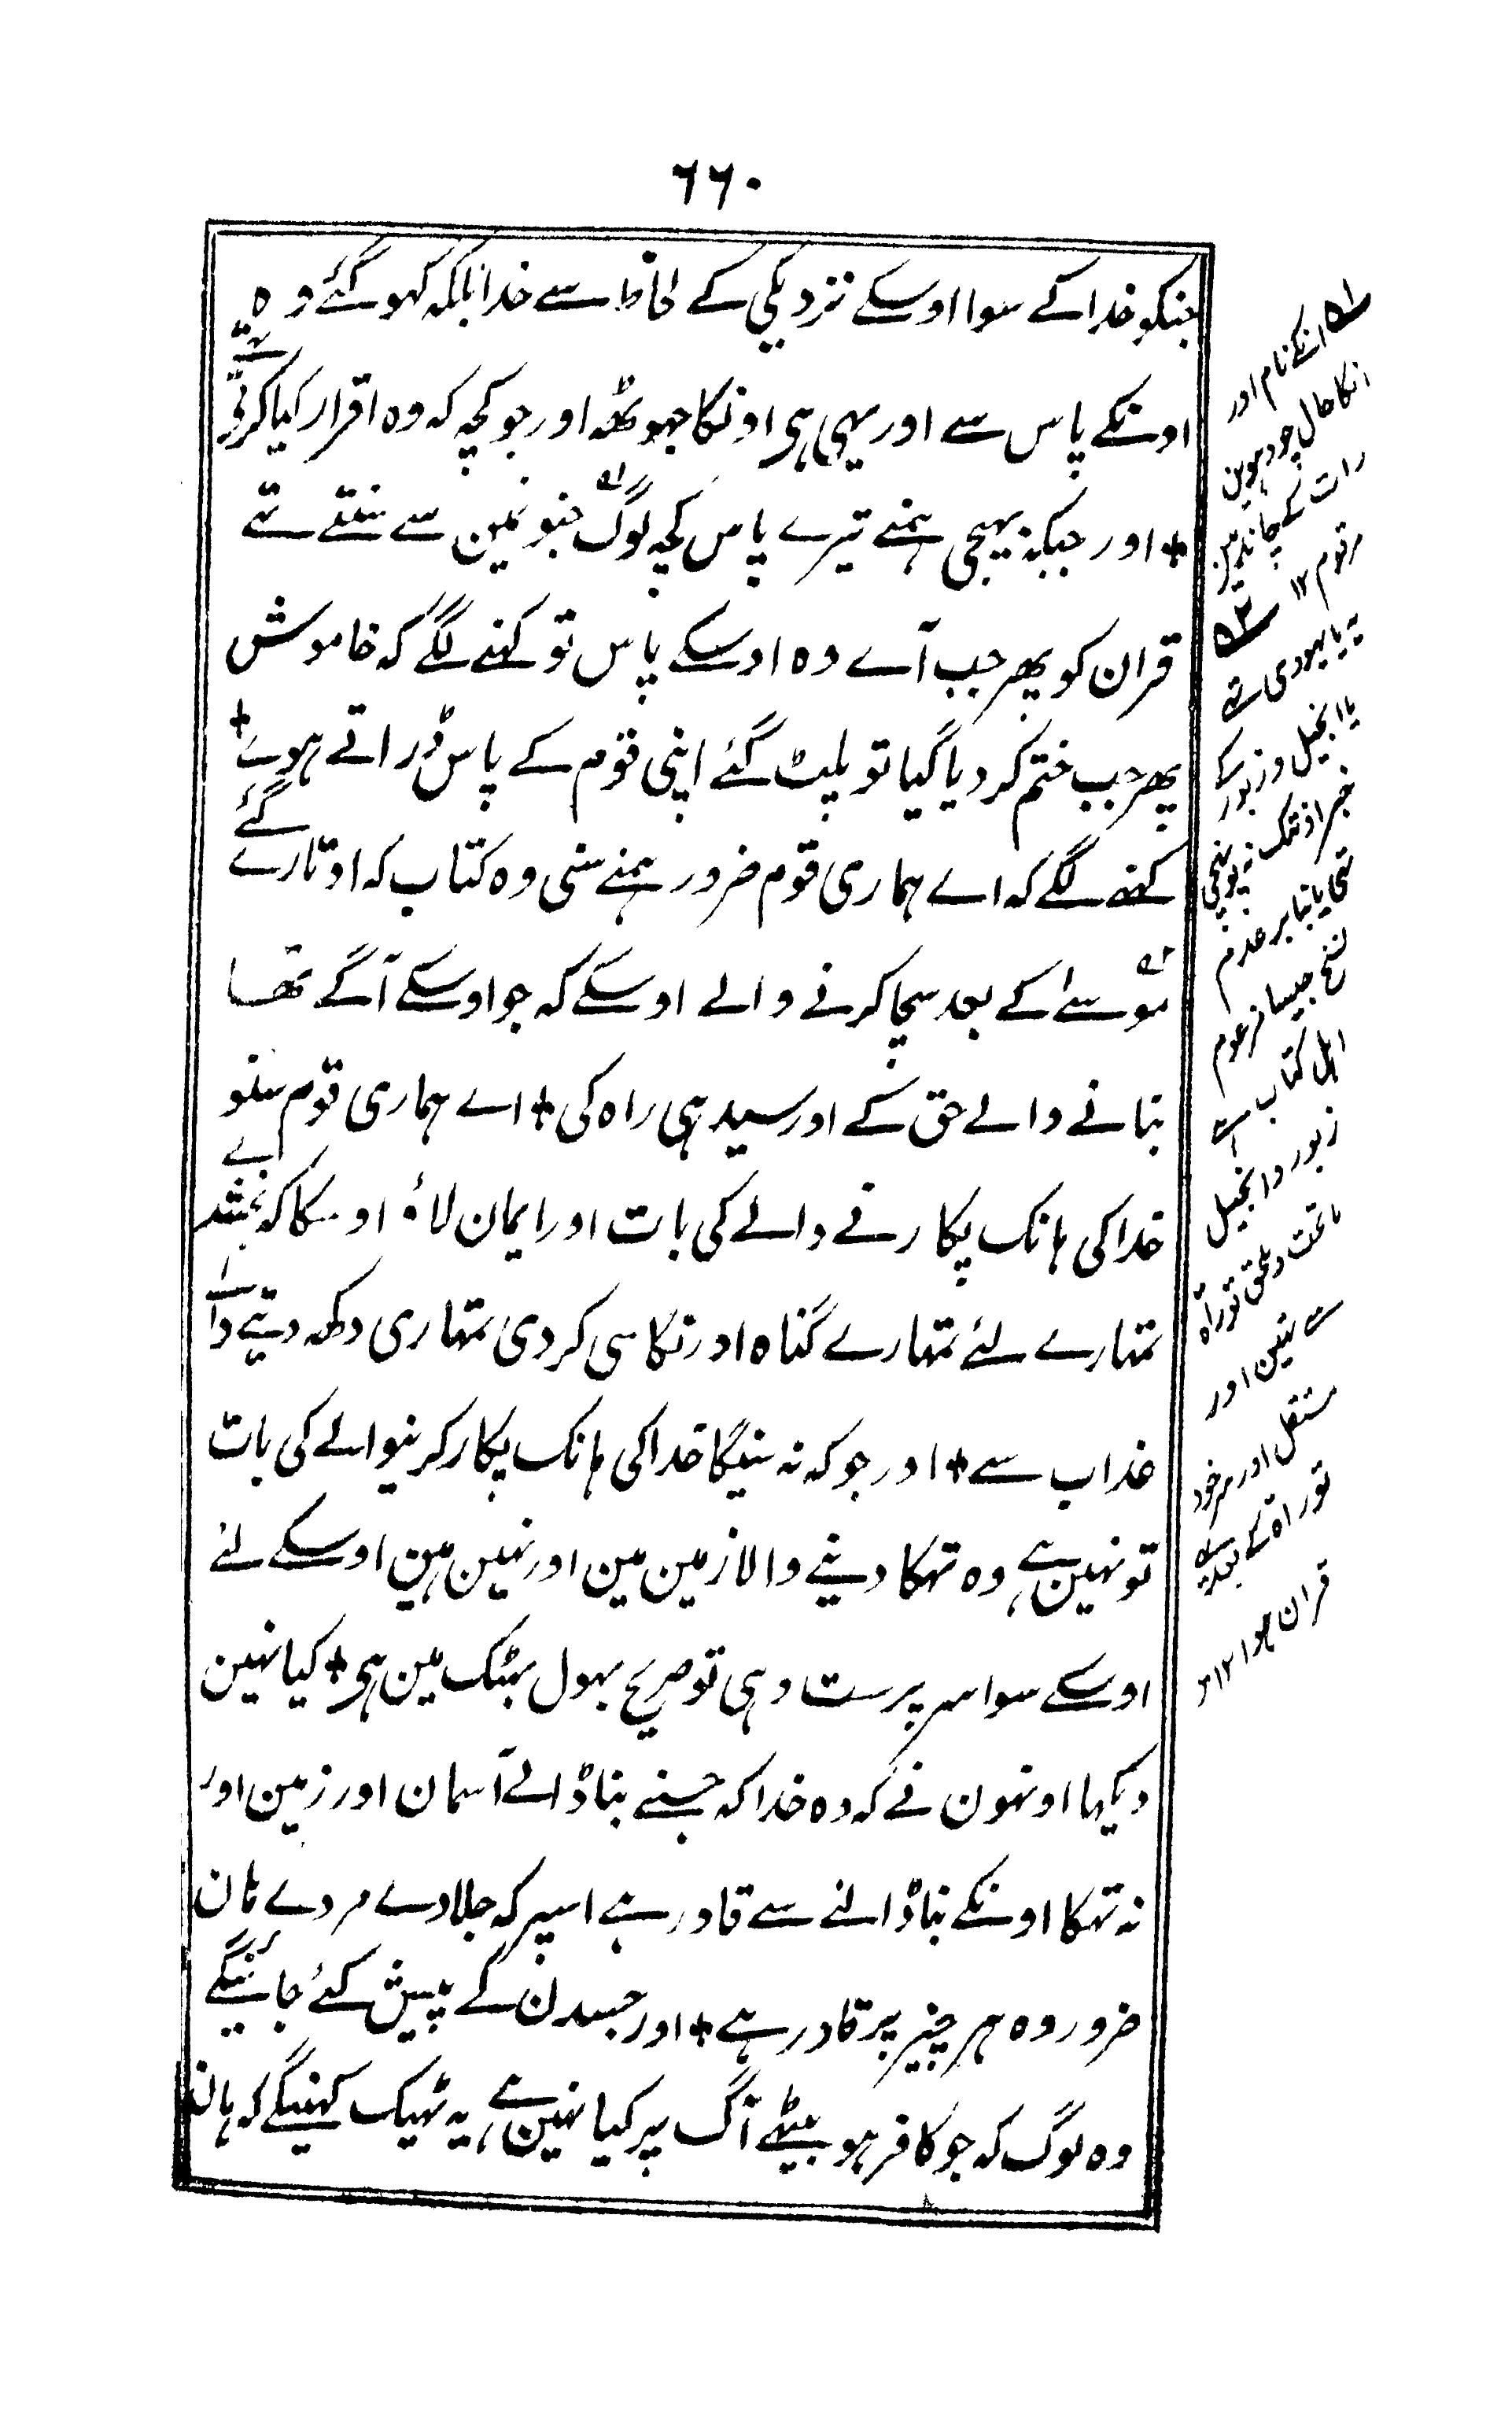 ۶۶۰
جنکو خدا کے سوا اوسکے نزدیکی کے لحاظ سے خدا بلکہ کہو گئے وہ
اونکے پاس سے اور یہی ہی اونکا جہوٹھہ اور جو کچہ کہ وہ اقرار کیا کرتے تھے
+ اور جبکہ بہیجی ہمنے تیرے پاس کچہ لوگ جنونمین سے سنتے تہے
قران کو پھر جب آے وہ اوسکے پاس تو کہنے لگے کہ خاموش
پھر جب ختم کر دیا گیا تو پلٹ گئے اپنی قوم کے پاس ڈراتے ہوے +
کہنے لگے کہ اے ہماری قوم ضرور ہمنے سنی وہ کتاب کہ اوتارے گئے
موسےٰ کے بعد سچا کرنے والے اوسکے کہ جو اوسکے آگے تھا
بتانے والے حق کے اور سیدہی راہ کی + اے ہماری قوم سنو
خدا کی ہانک پکارنے والے کی بات اور ایمان لاؤ اوسکا کہ بخشدے
تمہارے لئے تمہارے گناہ اور نکاسی کر دی تمہاری دکھہ دینے والے
عذاب سے + اور جو کہ نہ سنیگا خدا کی ہانک پکار کرنیوالے کی بات
تو نہین ہے وہ تہکا دینے والا زمین مین اور نہین ہین اوسکے لئے
اوسکے سوا سرپرست وہی تو صریح بہول بہٹک مین ہی + کیا نہین
دیکہا اونہون نے کہ وہ خدا کہ جسنے بنا ڈالے آسمان اور زمین اور
نہ تہکا اونکے بنا ڈالنے سے قادر ہے اسپر کہ جلا دے مردے ہان
ضرور وہ ہر چیز پر قادر ہے + اور جسدن کے پیش کئے جائینگے
وہ لوگ کہ جو کافر ہو بیٹھے آگ پر کیا نہین ہے یہ ٹہیک کہینگے کہ ہان
انکے نام اور
انکا حال چودہوین
رات کے چاند مین
مرقوم ۱۲
یہ یا یہودی تہے
یا انجیل و زبور کے
خبر اونتک نہ پہونچی
تہی یا بنابر عدم
نسخ جیسا مزعوم
اہل کتاب ہے
زبور و انجیل
ماتحت و ملحق توراۃ
ہین اور
مستقل اور سرخود
توراۃ کے بعد یہ
قران ہوا ۱۲